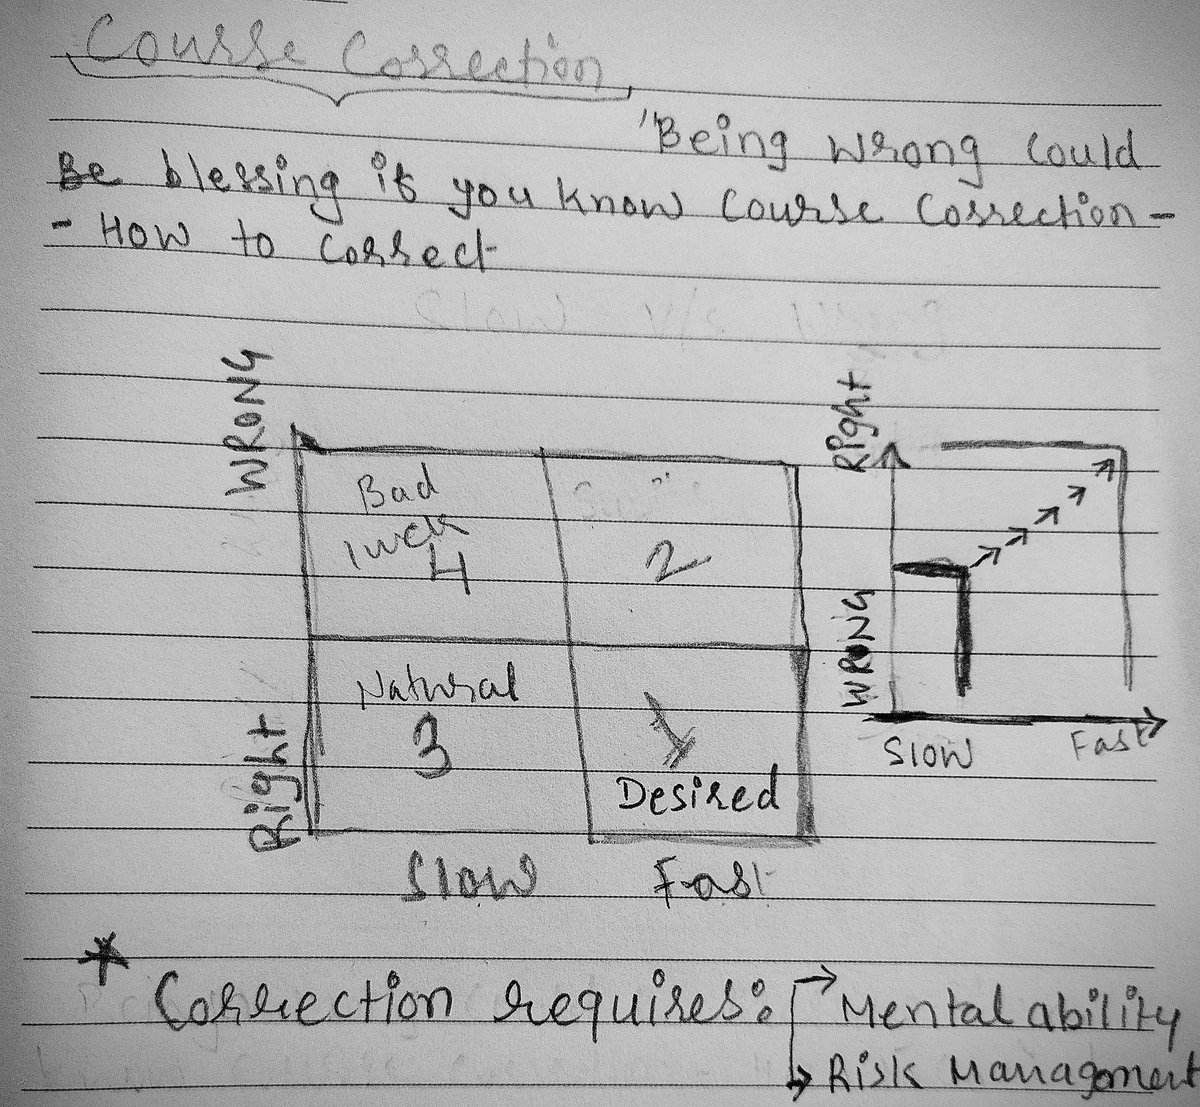 Course Correction
"Being wrong could
Be blessing if you know Course Correction -
- How to Correct
WRONG
Bad
luck
4
2
Natural
3
1
Desired
Right
Slow
Fast
Right
WRONG
Slow
Fast
* Correction requires: → Mental ability
→ Risk Management